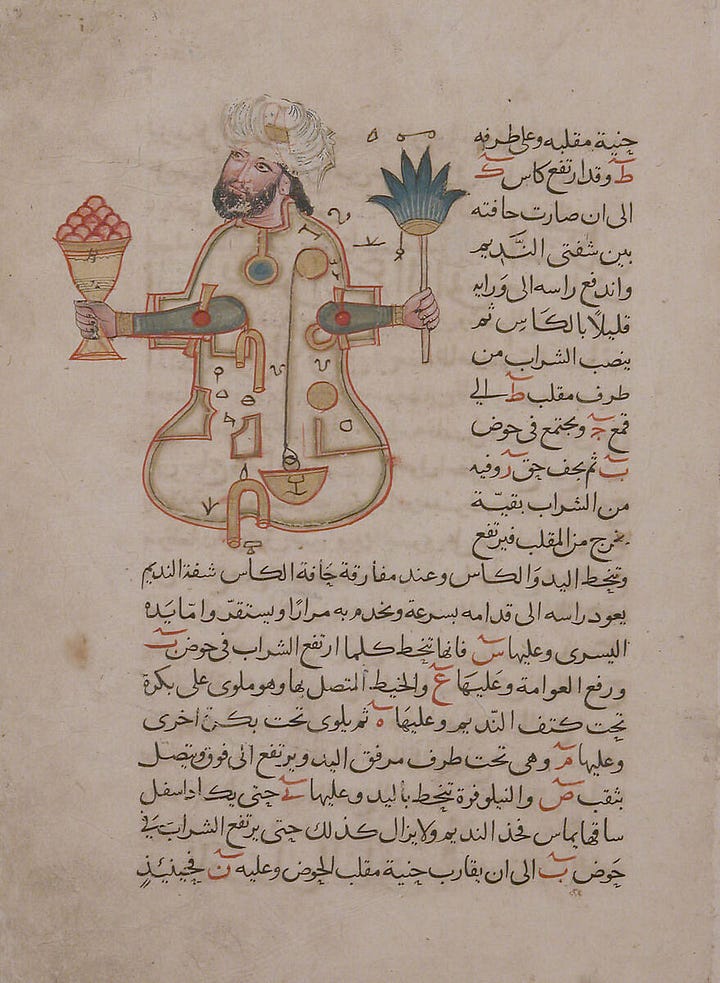 جنبة مقلبه وعلى طرفه
ط وقد ارتفع كاس ك
الى ان صارت حافته
بين شفتى النديم
واندفع راسه الى ورايه
قليلاً بالكاس ثم
ينصب الشراب من
طرف مقلب ط الى
قمع ج ويجتمع فى حوض
ب ثم يجف حق ر وفيه
من الشراب بقيّة
يخرج من المقلب فيرتفع
وتنحط اليد والكاس وعند مفارقة حافة الكاس شفة النديم
يعود راسه الى قدامه بسرعة ويخدم به مرارًا ويستقر وامّا يده
اليسرى وعليها س فانها تنحط كلما ارتفع الشراب فى حوض ب
ورفع العوامة وعليها ع والخيط المتصل بها وهو ملوى على بكرة
تحت كتف النّديم وعليها ه ثم يلوى تحت بكرة اخرى
وعليها م وهى تحت طرف مرفق اليد ويرتفع الى فوق ويتصل
بثقب ص والنيلوفرة تنحط باليد وعليها حتى يكاد اسفل
ساقها يماس فخذ النديم ولا يزال كذلك حتى يرتفع الشراب فى
حوض ب الى ان يقارب جنبة مقلب الحوض وعليه ن فحينيذٍ